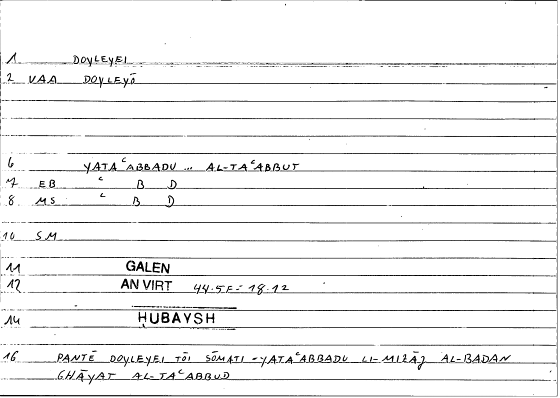 1 DOYLEYEI
2 VAA DOYLEYŌ
6 YATAᶜABBADU ... AL-TAᶜABBUT
7 EB ᶜ B D
8 MS ᶜ B D
10 SM
11 GALEN
12 AN VIRT 44.5F = 18.12
14 ḤUBAYSH
16 PANTĒ DOYLEYEI TŌI SŌMATI - YATAᶜABBADU LI-MIZĀǦ AL-BADAN
GHĀYAT AL-TAᶜABBUD